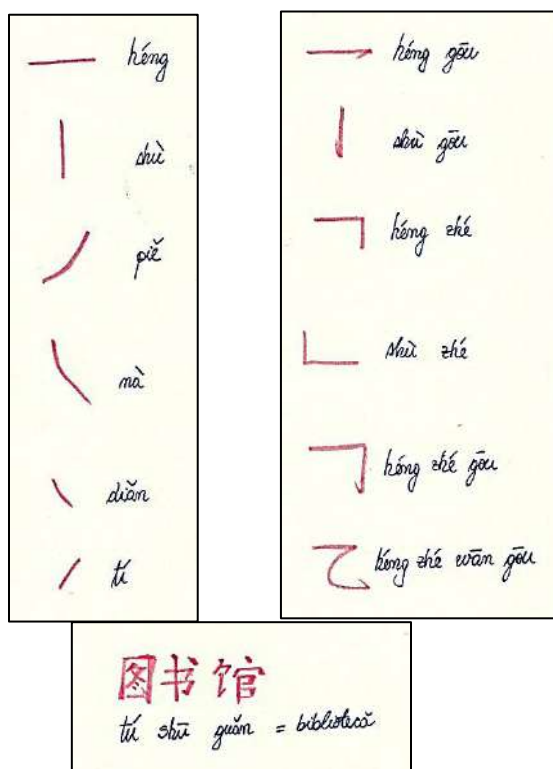 héng
shù
piě
nà
diǎn
tí
héng gōu
shù gōu
héng zhé
shù zhé
héng zhé gōu
héng zhé wān gōu
图书馆
tú shū guǎn = bibliotecă